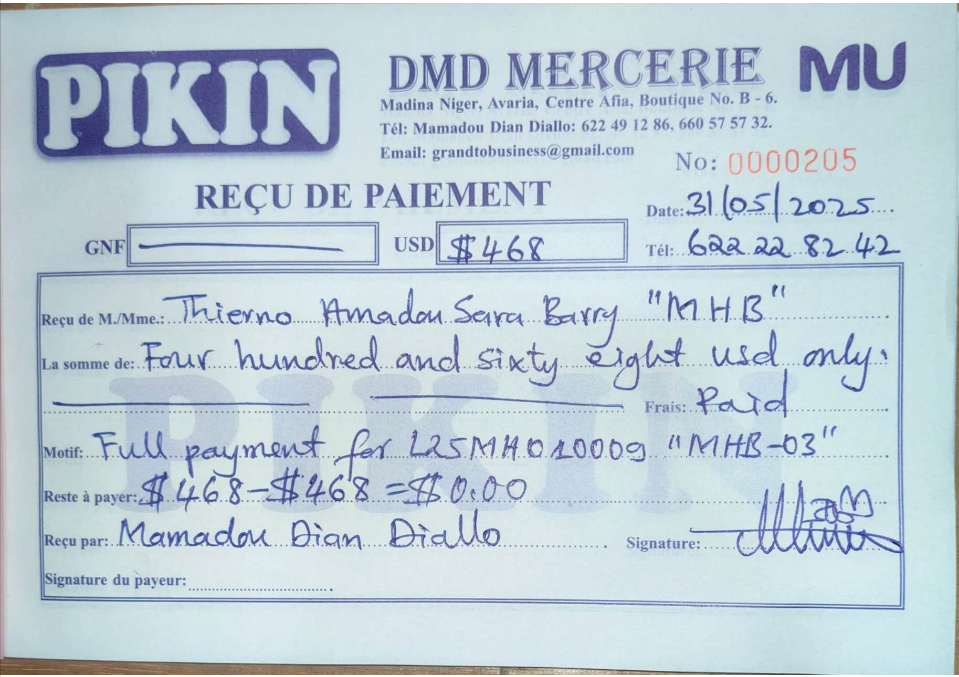 PIKIN
DMD MERCERIE
MU
Madina Niger, Avaria, Centre Afia, Boutique No. B - 6.
Tél: Mamadou Dian Diallo: 622 49 12 86, 660 57 57 32.
Email: grandtobusiness@gmail.com
No: 0000205
REÇU DE PAIEMENT
Date: 31/05/2025
GNF
USD $468
Tél: 622 22 82 42
Reçu de M./Mme.: Thierno Amadou Sara Barry "MHB"
La somme de: Four hundred and sixty eight usd only.
Frais: Paid
Motif: Full payment for L25MH010009 "MHB-03"
Reste à payer: $468-$468=$0.00
Reçu par: Mamadou Dian Diallo
Signature:
Signature du payeur:
PIKIN